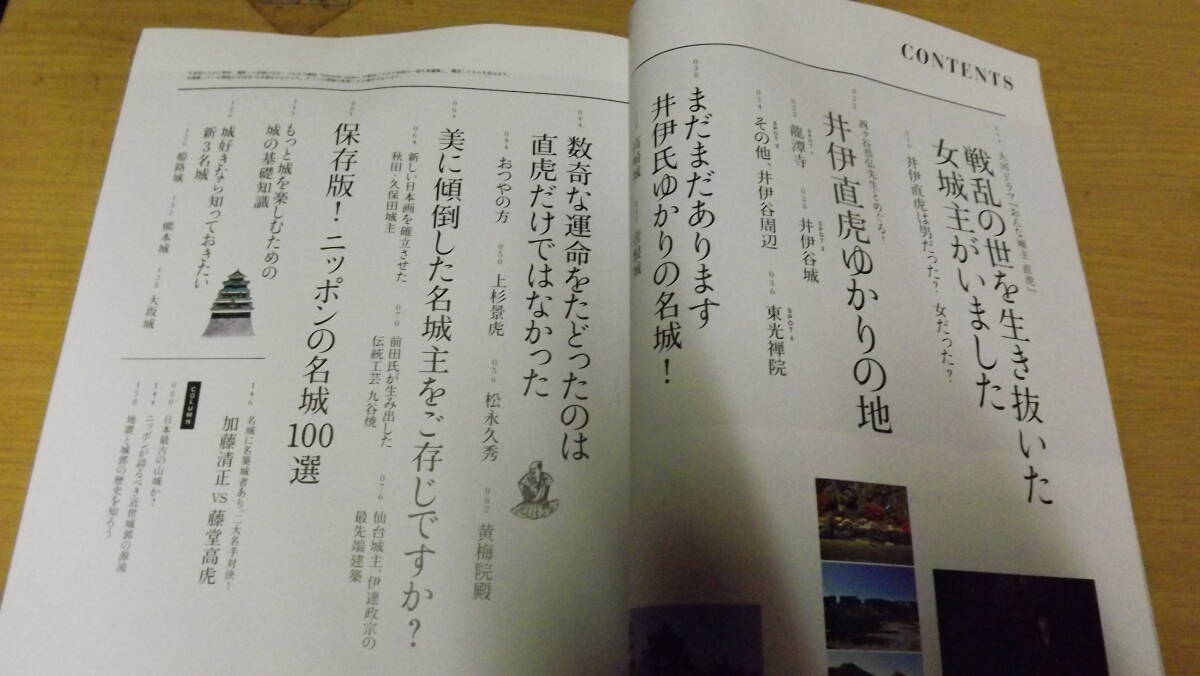 CONTENTS
大河ドラマ「おんな城主 直虎」
戦乱の世を生き抜いた
女城主がいました
井伊直虎は男だった？ 女だった？
022
西ヶ谷恭弘先生とめぐる！
井伊直虎ゆかりの地
SPOT 1
龍潭寺
028
SPOT 2
井伊谷城
034
SPOT 3
その他、井伊谷周辺
036
SPOT 4
東光禅院
038
まだまだあります
井伊氏ゆかりの名城！
高崎城
彦根城
044
数奇な運命をたどったのは
直虎だけではなかった
044
おつやの方
050
上杉景虎
056
松永久秀
062
黄梅院殿
064
美に傾倒した名城主をご存じですか？
064
新しい日本画を確立させた
秋田・久保田城主
070
前田氏が生み出した
伝統工芸 九谷焼
076
仙台城主、伊達政宗の
最先端建築
081
保存版！ニッポンの名城100選
113
もっと城を楽しむための
城の基礎知識
116
城好きなら知っておきたい
新3名城
姫路城
122
熊本城
128
大坂城
146
名城に名築城者あり。二大名手対決！
加藤清正 vs 藤堂高虎
COLUMN
080
日本最古の山城か？
144
ニッポンが誇るべき近世城郭の源流
158
地震と城郭の歴史を知ろう